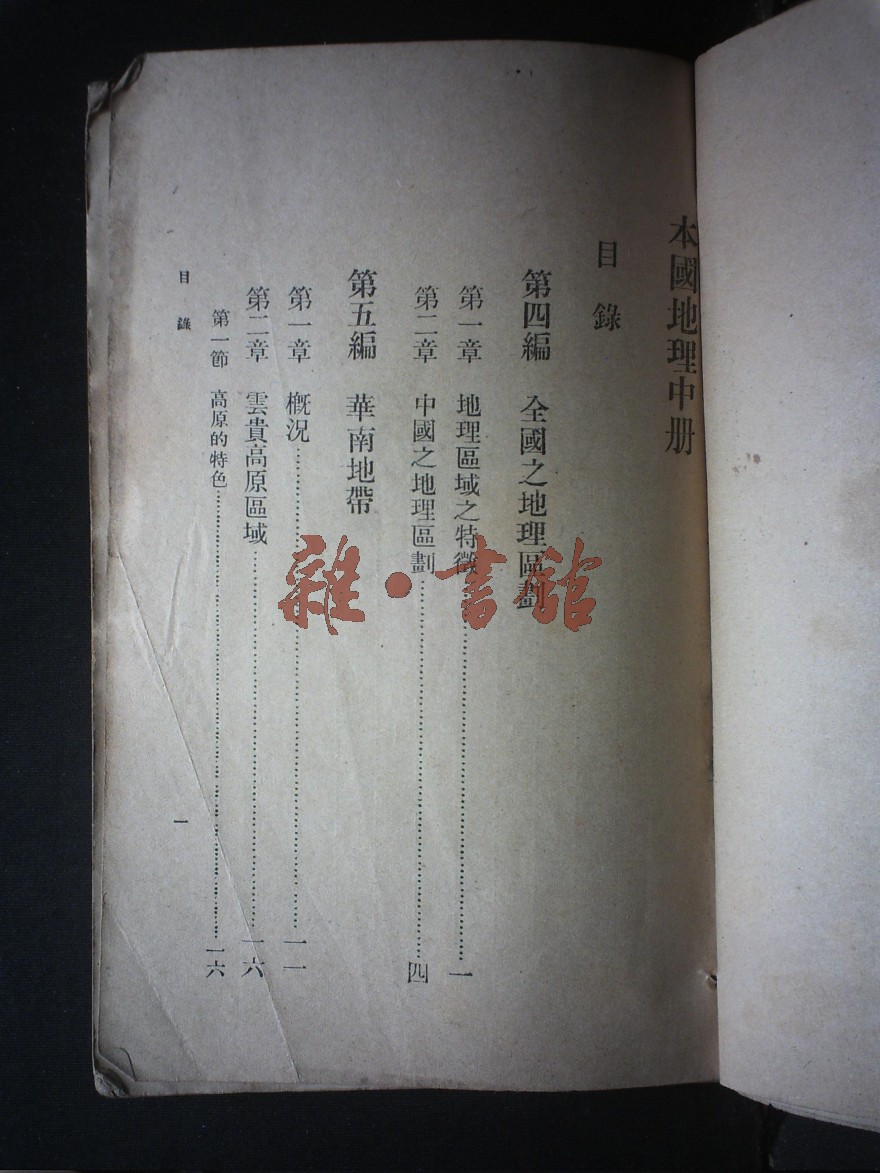 本國地理中册
目錄
第四編 全國之地理區劃
第一章 地理區域之特徵……一
第二章 中國之地理區劃……四
第五編 華南地帶
第一章 概況……一一
第二章 雲貴高原區域……一六
第一節 高原的特色……一六
目錄 一
雜·書館